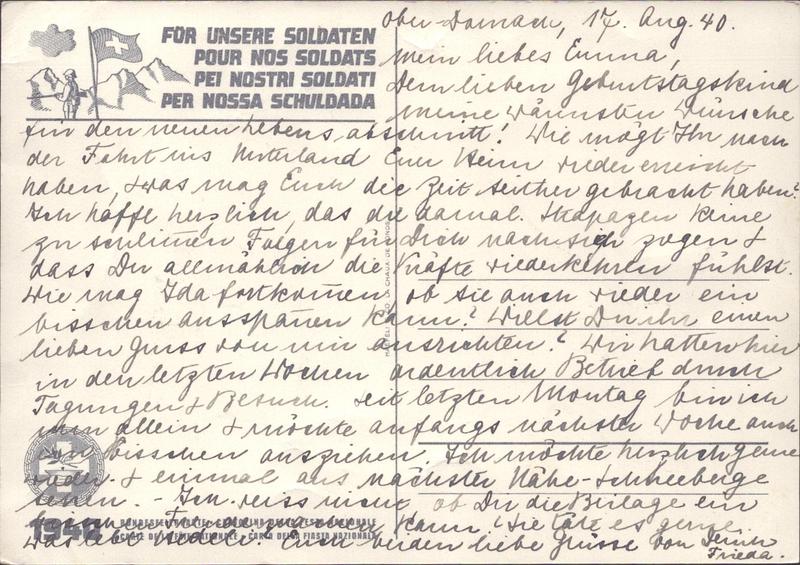 FÜR UNSERE SOLDATEN
POUR NOS SOLDATS
PEI NOSTRI SOLDATI
PER NOSSA SCHULDADA
Ober-Dornach, 17. Aug. 40.
Mein liebes Emma,
Dem lieben Geburtstagskind
meine wärmsten Wünsche
für den neuen Lebensabschnitt! Wie mögt Ihr nach
der Fahrt ins Unterland Euer Heim wieder erreicht
haben, + was mag Euch die Zeit seither gebracht haben?
Ich hoffe herzlich, das die damal. Strapazen keine
zu schlimen Folgen für Dich nach sich zogen +
dass Du allmählich die Kräfte wiederkehren fühlst.
Wie mag Ida fortkomen, ob sie auch wieder ein
bisschen ausspanen kann? Willst Du ihr einen
lieben Gruss von mir ausrichten? Wir hatten hier
in den letzten Wochen ordentlich Betrieb durch
Tagungen + Besuch. Seit letzten Montag bin ich
nun allein + möchte anfangs nächster Woche auch
ein bisschen ausziehen. Ich möchte herzlich gerne
wieder einmal aus nächster Nähe Schneeberge
sehen. - Ich weiss nicht, ob Du die Beilage ein
Freude kann? Sie täte es gerne.
Was lebt Euch beiden liebe Grüsse von Deiner
Frieda.
1940